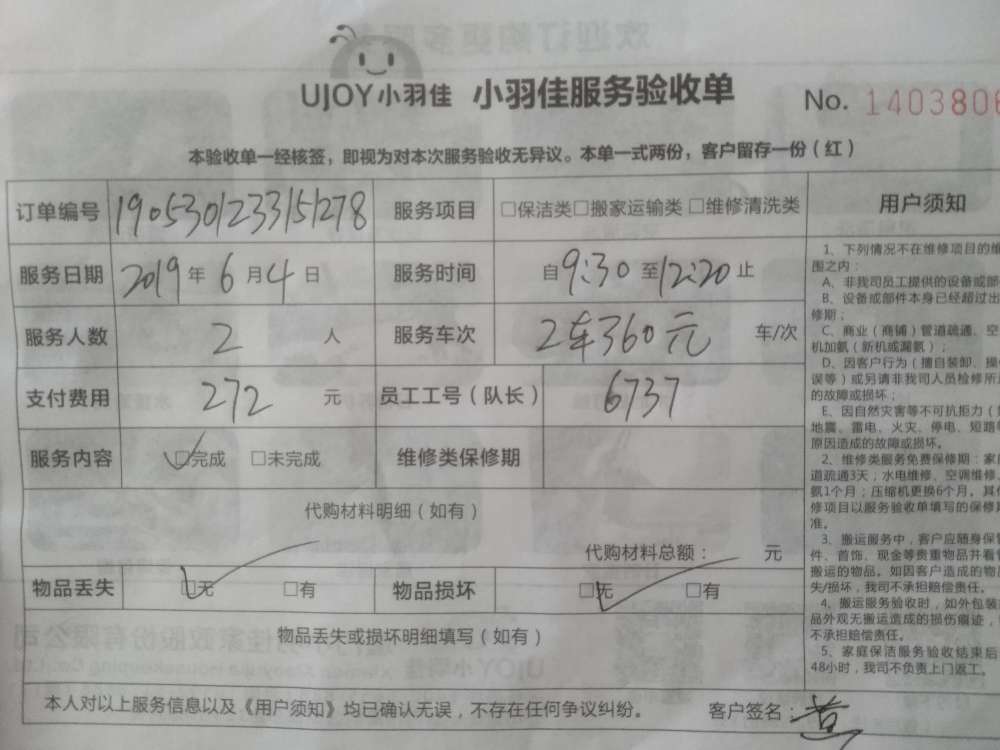 UJOY小羽佳 小羽佳服务验收单 No. 1403806
本验收单一经核签，即视为对本次服务验收无异议。本单一式两份，客户留存一份（红）
订单编号 1905301233151278 服务项目 □保洁类□搬家运输类 □维修清洗类
服务日期 2019年6月4日 服务时间 自9:30至12:20止
服务人数 2 人 服务车次 2车360元 车/次
支付费用 272 元 员工工号（队长） 6737
服务内容 □完成 □未完成 维修类保修期
代购材料明细（如有）
代购材料总额： 元
物品丢失 □无 □有 物品损坏 □无 □有
物品丢失或损坏明细填写（如有）
本人对以上服务信息以及《用户须知》均已确认无误，不存在任何争议纠纷。 客户签名：黄
用户须知
1、下列情况不在维修项目的维
围之内：
A、非我司员工提供的设备或部
B、设备或部件本身已经超过出
修期；
C、商业（商铺）管道疏通、空
机加氨（新机或漏氨）；
D、因客户行为（擅自装卸、操
误等）或另请非我司人员检修所
的故障或损坏；
E、因自然灾害等不可抗拒力（
地震、雷电、火灾、停电、短路
原因造成的故障或损坏。
2、维修类服务免费保修期：家
道疏通3天；水电维修、空调维修、
氨1个月；压缩机更换6个月，其
修项目以服务验收单填写的保修
准。
3、搬运服务中，客户应随身保
件、首饰、现金等贵重物品并看
搬运的物品。如因客户造成的物
失/损坏，我司不承担赔偿责任。
4、搬运服务验收时，如外包装
品外观无搬运造成的损伤痕迹，
不承担赔偿责任。
5、家庭保洁服务验收结束后
48小时，我司不负责上门返工。